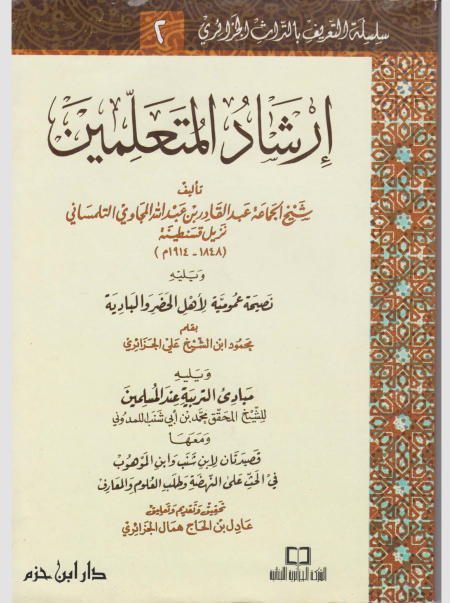 سلسلة التعريف بالتراث الجزائري
٢
إرشاد المتعلمين
تأليف
شيخ الجماعة عبد القادر بن عبد الله المجاوي التلمساني
نزيل قسنطينة
(١٨٤٨ - ١٩١٤م)
ويليه
نصيحة عمومية لأهل الحضر والبادية
بقلم
محمود ابن الشيخ علي الجزائري
ويليه
مبادئ التربية عند المسلمين
للشيخ المحقق محمد بن أبي شنب اللمدوني
ومعها
قصيدتان لابن شنب وابن الموهوب
في الحث على النهضة وطلب العلوم والمعارف
تحقيق وتقديم وتعليق
عادل بن الحاج همال الجزائري
الشركة الجزائرية اللبنانية
دار ابن حزم